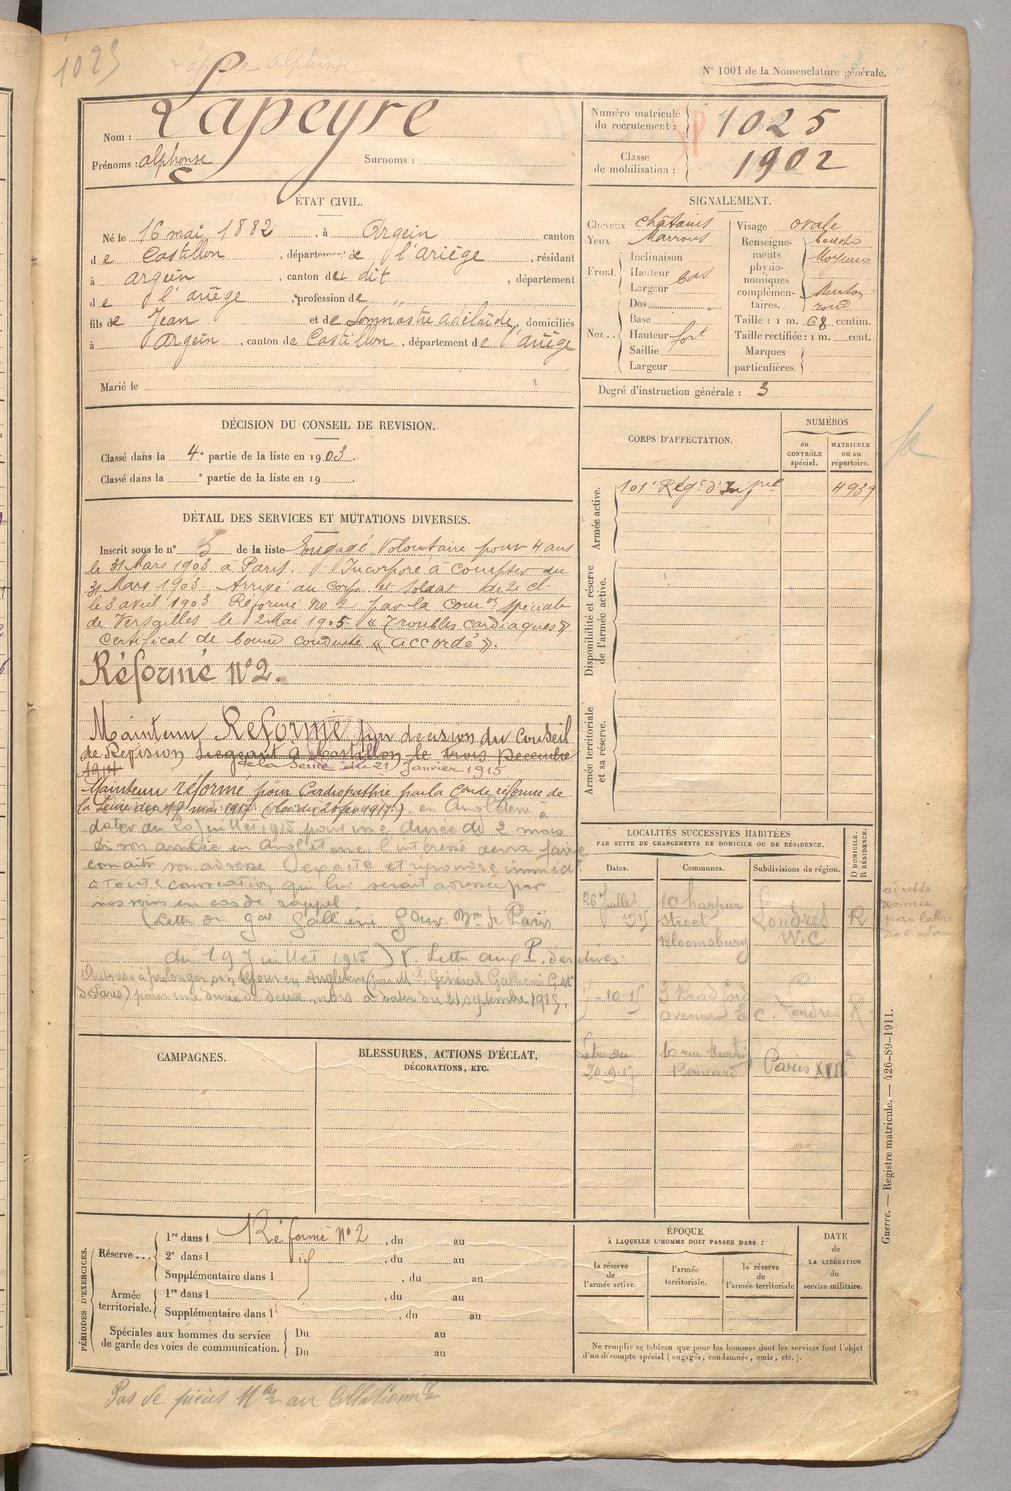 1025
Lapeyre alphonse
N° 1001 de la Nomenclature générale.
Nom : Lapeyre
Prénoms : alphonse Surnoms :
Numéro matricule du recrutement : 1025
Classe de mobilisation : 1902
ÉTAT CIVIL.
Né le 16 mai 1882, à Argein canton
de Castillon, département de l'Ariége, résidant
à argein, canton du dit, département
de l'ariége, profession de
fils de Jean et de adélaïde, domiciliés
à argein, canton de Castillon, département de l'ariège
Marié le
SIGNALEMENT.
Cheveux chatains
Yeux Marrons
Front. Inclinaison
Hauteur bas
Largeur
Nez.. Dos
Base
Hauteur fort
Saillie
Largeur
Visage ovale
Renseignements physionomiques complémentaires. bouche Moyenne Menton rond
Taille : 1 m. 68 centim.
Taille rectifiée : 1 m. cent.
Marques particulières.
Degré d'instruction générale : 3
DÉCISION DU CONSEIL DE REVISION.
Classé dans la 4e partie de la liste en 1903.
Classé dans la e partie de la liste en 19 .
CORPS D'AFFECTATION.
NUMÉROS
au CONTRÔLE spécial.
MATRICULE ou au répertoire.
Armée active.
101e Régt d'Infrie 4939
Disponibilité et réserve de l'armée active.
Armée territoriale et sa réserve.
DÉTAIL DES SERVICES ET MUTATIONS DIVERSES.
Inscrit sous le n° 5 de la liste Engagé Volontaire pour 4 ans
le 31 Mars 1903 à Paris. Incorporé à compter du
31 Mars 1903. Arrivé au corps et soldat de 2e cl
le 3 avril 1903. Réformé no 2 par la comon spéciale
de Versailles le 12 Mai 1905 « Troubles cardiaques »
Certificat de bonne conduite « accordé ».
Réformé N°2.
Maintenu Réformé par décision du Conseil
de Révision siégeant à Castillon le trois Décembre
1914 de la Seine du 21 janvier 1915
Maintenu réformé pour Cardiopathie par la de réforme de
la Seine du mai 1917 (loi du 20 fev 1917) en Angleterre à
dater du 20 juillet 1915 pour une durée de 2 mois
à son arrivée en Angleterre l'intéressé devra faire
connaître son adresse exacte et répondre immédt
à toute convocation qui lui serait adressée par
nos soins en cas de rappel
(Lettre du gal Galliéni Gouvr Mre de Paris
du 19 juillet 1915)
Autorisé à prolonger son séjour en Angleterre (par M. le Général Galliéni G. M.
de Paris) pour une durée de deux mois à dater du 21 septembre 1915.
LOCALITÉS SUCCESSIVES HABITÉES
PAR SUITE DE CHANGEMENTS DE DOMICILE OU DE RÉSIDENCE.
Dates. Communes. Subdivisions de région. D DOMICILE. R RÉSIDENCE.
26 juillet 1915 10 harpur street Bloomsbury Londres W.C R
5-10-15 3 Bradford avenue E C. Londres R
20.9.17 10 rue Paris XIII
CAMPAGNES.
BLESSURES, ACTIONS D'ÉCLAT, DÉCORATIONS, ETC.
PÉRIODES D'EXERCICES.
Réserve... 1re dans l Réformé No 2, du au
2e dans l , du au
Supplémentaire dans l , du au
Armée territoriale. 1re dans l , du au
Supplémentaire dans l , du au
Spéciales aux hommes du service de garde des voies de communication. Du au
Du au
ÉPOQUE
À LAQUELLE L'HOMME DOIT PASSER DANS :
la réserve de l'armée active.
l'armée territoriale.
la réserve de l'armée territoriale
DATE de LA LIBÉRATION du service militaire.
Ne remplir ce tableau que pour les hommes dont les services font l'objet d'un décompte spécial (engagés, condamnés, omis, etc.).
Guerre. — Registre matricule. — 426-89-1911.
Pas de pièces au